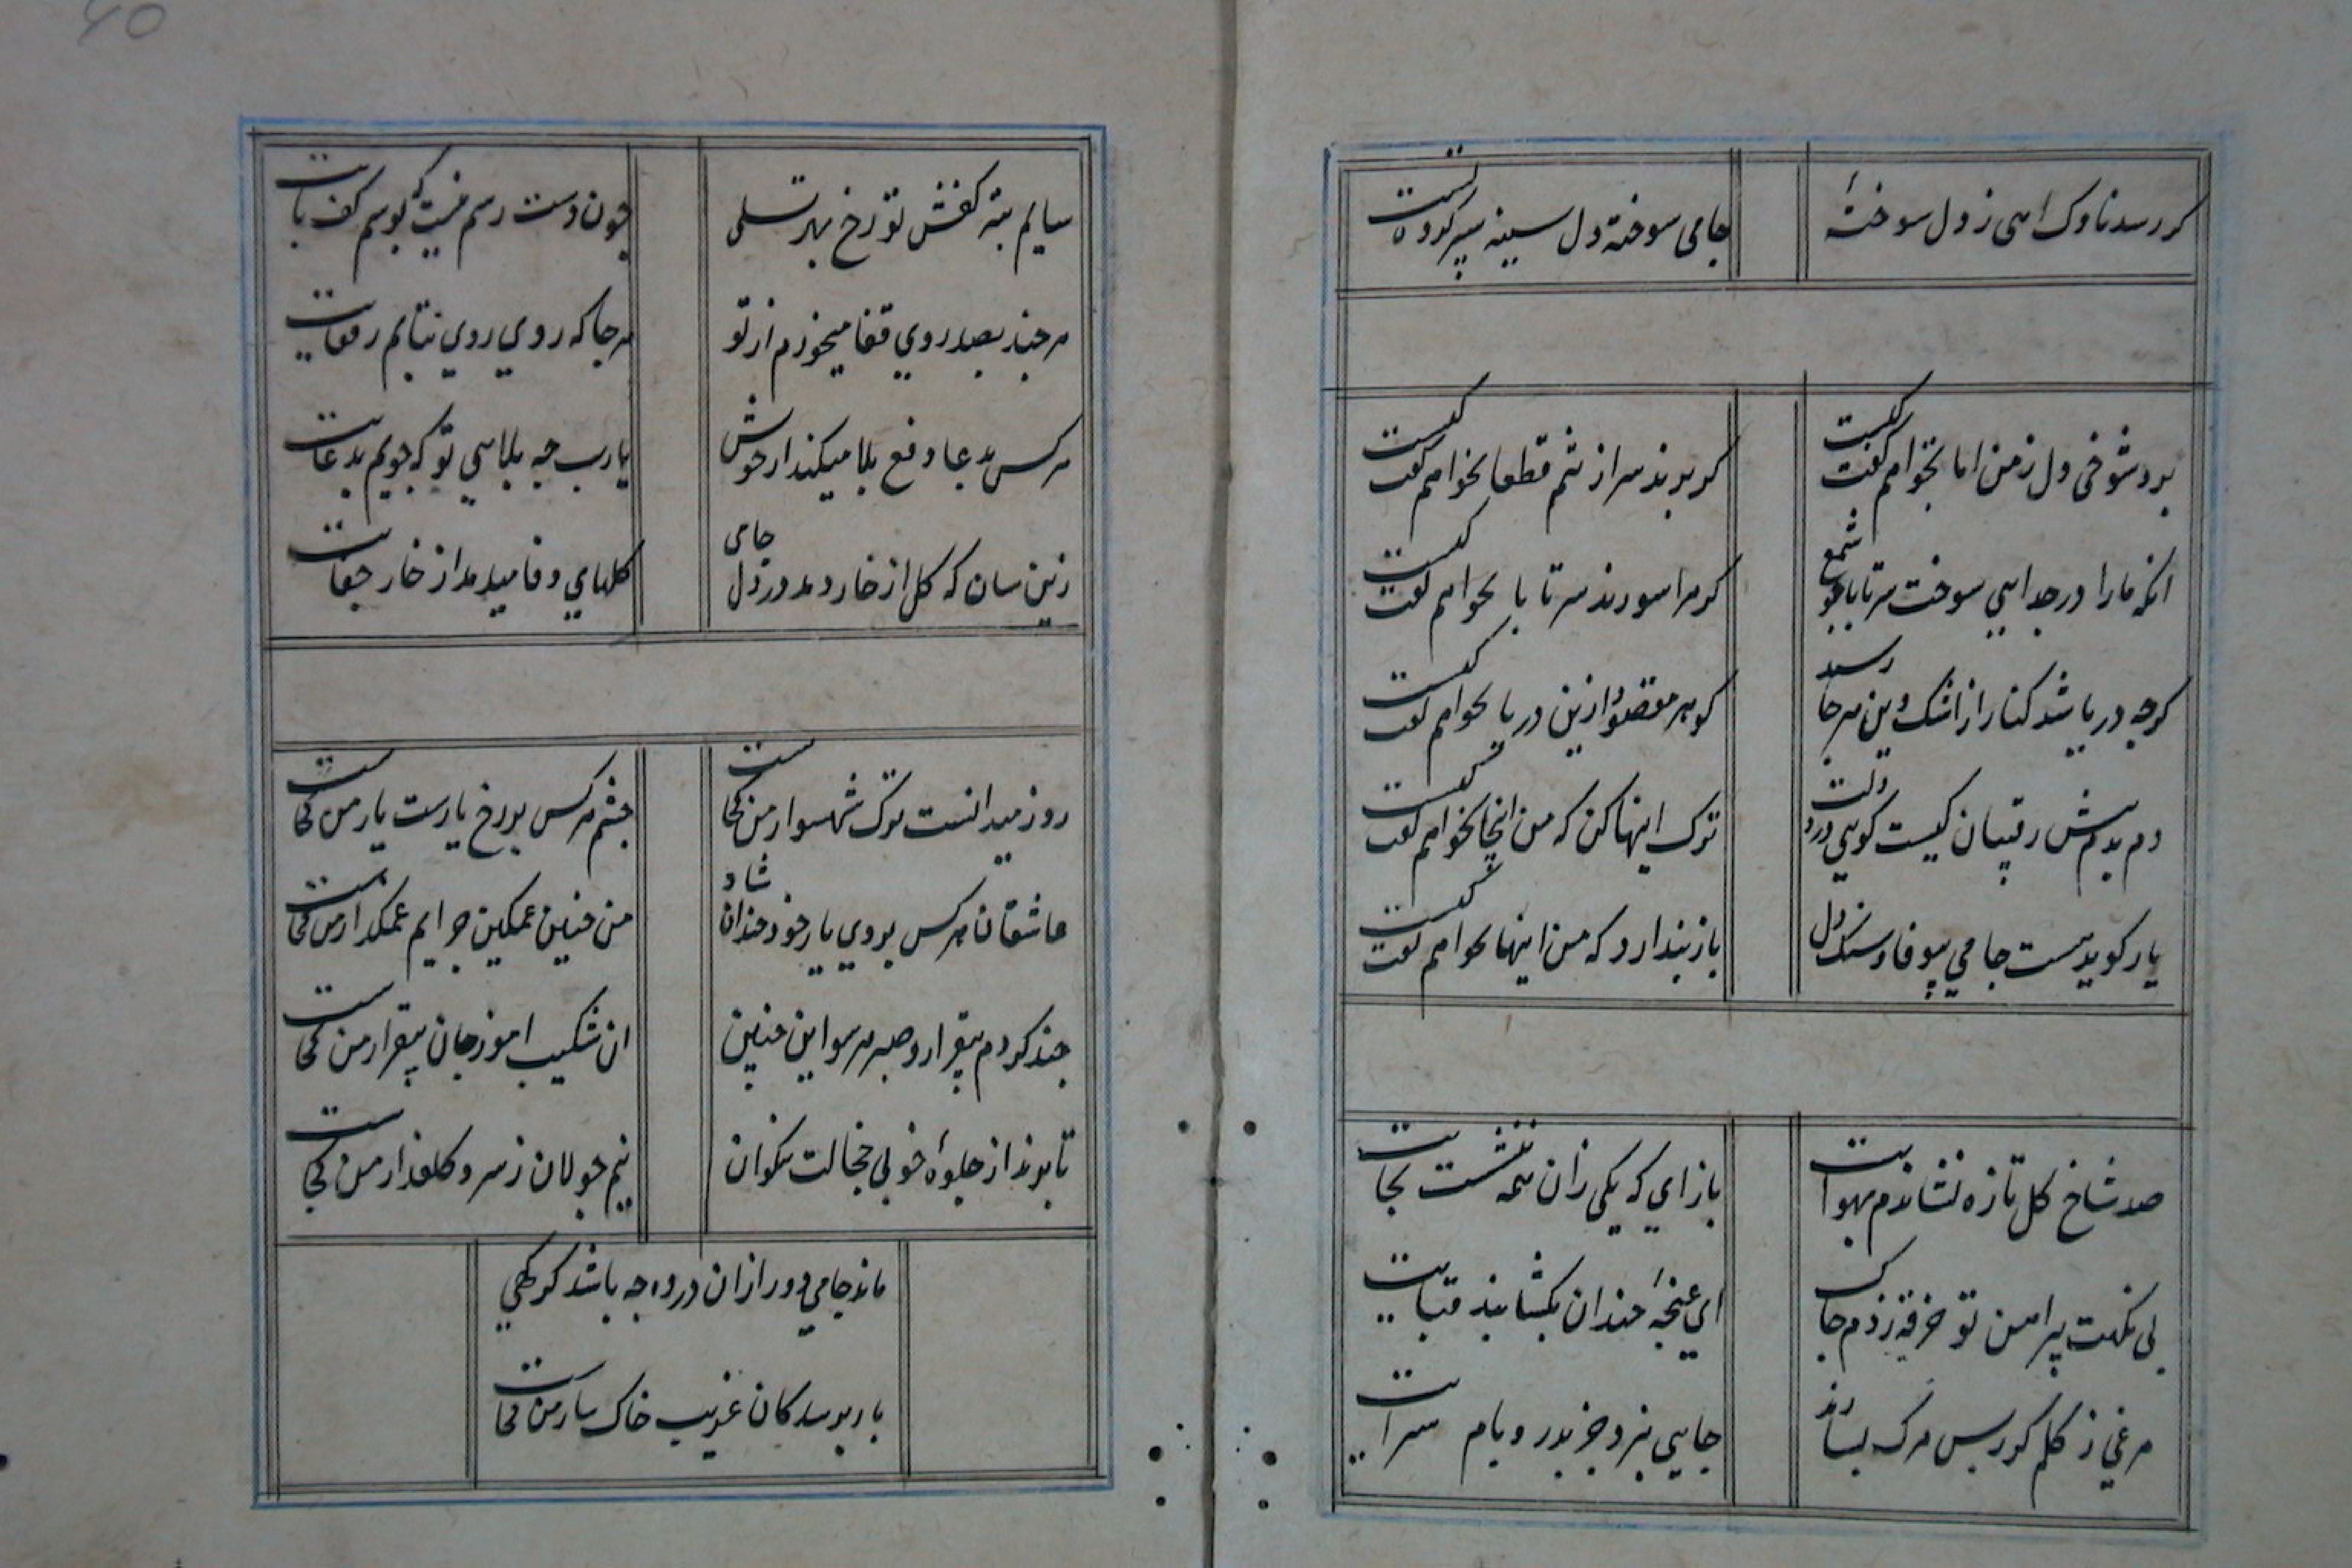 کر رسد ناوک اهی ز دل سوختهٔ
جامی سوخته دل سینه سپر کرده تست
برد شوخی دل ز من اما نخواهم گفت کیست
کر برند سر از تنم قطعا نخواهم گفت کیست
انکه مارا در جدایی سوخت سر تا پا چو شمع
کر مرا سوزند سر تا پا نخواهم گفت کیست
کرچه دریا شد کنار از اشک و بن هر جا رسید
کوهر مقصود ازین دریا نخواهم گفت کیست
دم بدم پیش رقیبان کیست کویی در دلت
ترک اینها کن که من اینجا نخواهم گفت کیست
یار کوید هست جامی بیوفا و سنک دل
باز پندارد که من اینها نخواهم گفت کیست
صد شاخ کل تازه نشاندم بهوایت
باز ای که یکی زان همه ننشست بجایت
بی نکهت پیراهن تو خرقه زدم چاک
ای غنچهٔ خندان بکشا بند قبایت
مرغی ز کلم کو ز پس مرک بسازند
جایی نپرد جز بدر و بام سرایت
سایم بته کفش تو رخ بهر تسلی
چون دست رسم نیست که بوسم کف پایت
هر چند بصد روی قفا میخورم از تو
هر جا که روی روی نتابم ز قفایت
هر کس بدعا دفع بلا میکند از خویش
یارب چه بلایی تو که جویم بدعایت
زین سان که کل از خار دمد در دل جامی
کلهای وفا میدمد از خار جفایت
روز میدانست ترک شهسوار من کجاست
چشم هر کس بر رخ یارست یار من کجاست
عاشقان هر کس بروی یار خود خندان و شاد
من چنین غمکین چرایم غمکسار من کجاست
چند کردم بیقرار و صبر هر سو این چنین
ان شکیب اموز جان بیقرار من کجاست
تا برند از جلوهٔ خوبی خجالت نیکوان
نیم جولان ز سرو کلعذار من کجاست
ماند جامی دور از ان در وه چه باشد کر کهی
باز پرسد کان غریب خاکسار من کجاست